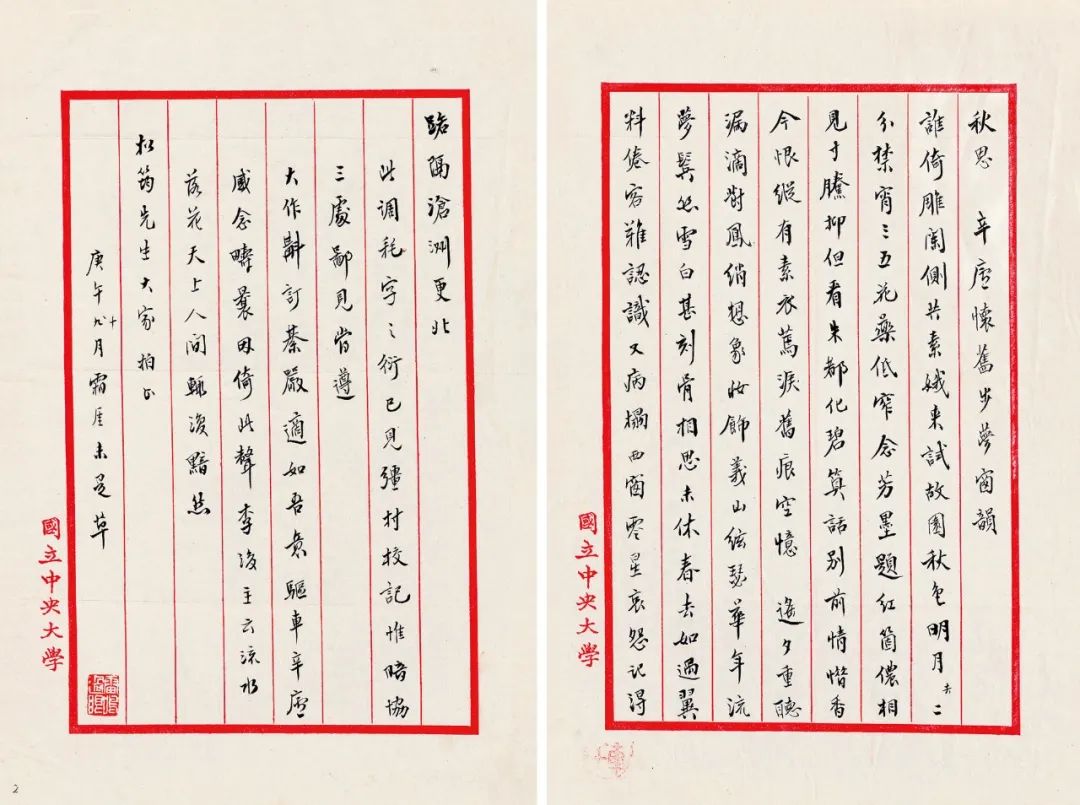 秋思　辛廬懷舊步夢窗韻
誰倚雕闌側共素娥來試故園秋色明月去二
分禁宵三五花藥低窄念芳墨題紅箇儂相
見寸腸抑但看朱都化碧算話別前情惜香
今恨縱有素衣蔫淚舊痕空憶　遙夕重聽
漏滴對鳳綃想象妝飾義山絃瑟華年流
夢鬢絲雪白甚刻骨相思未休春去如過翼
料倦容難認識又病榻西窗零星哀怨記得
國立中央大學
路隔滄洲更北
此調秏字之衍已見彊村校記惟暗協
三處鄙見當遵
大作斠訂綦嚴適如吾意驅車辛廬
感念疇曩因倚此聲李後主云流水
落花天上人間輒復黯然
松筠先生大家拍正
庚午九十月霜厓未是草
國立中央大學
2